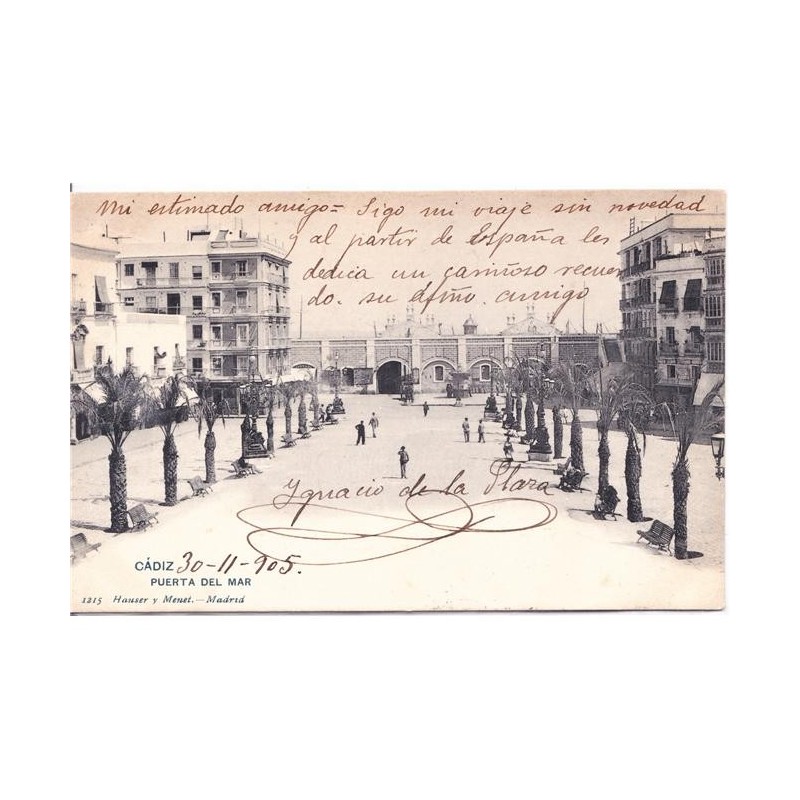 Mi estimado amigo= Sigo mi viaje sin novedad
y al partir de España les
dedica un cariñoso recuer
do. su dfño. amigo
Ignacio de la Llara
CÁDIZ 30-11-905.
PUERTA DEL MAR
1215 Hauser y Menet.—Madrid